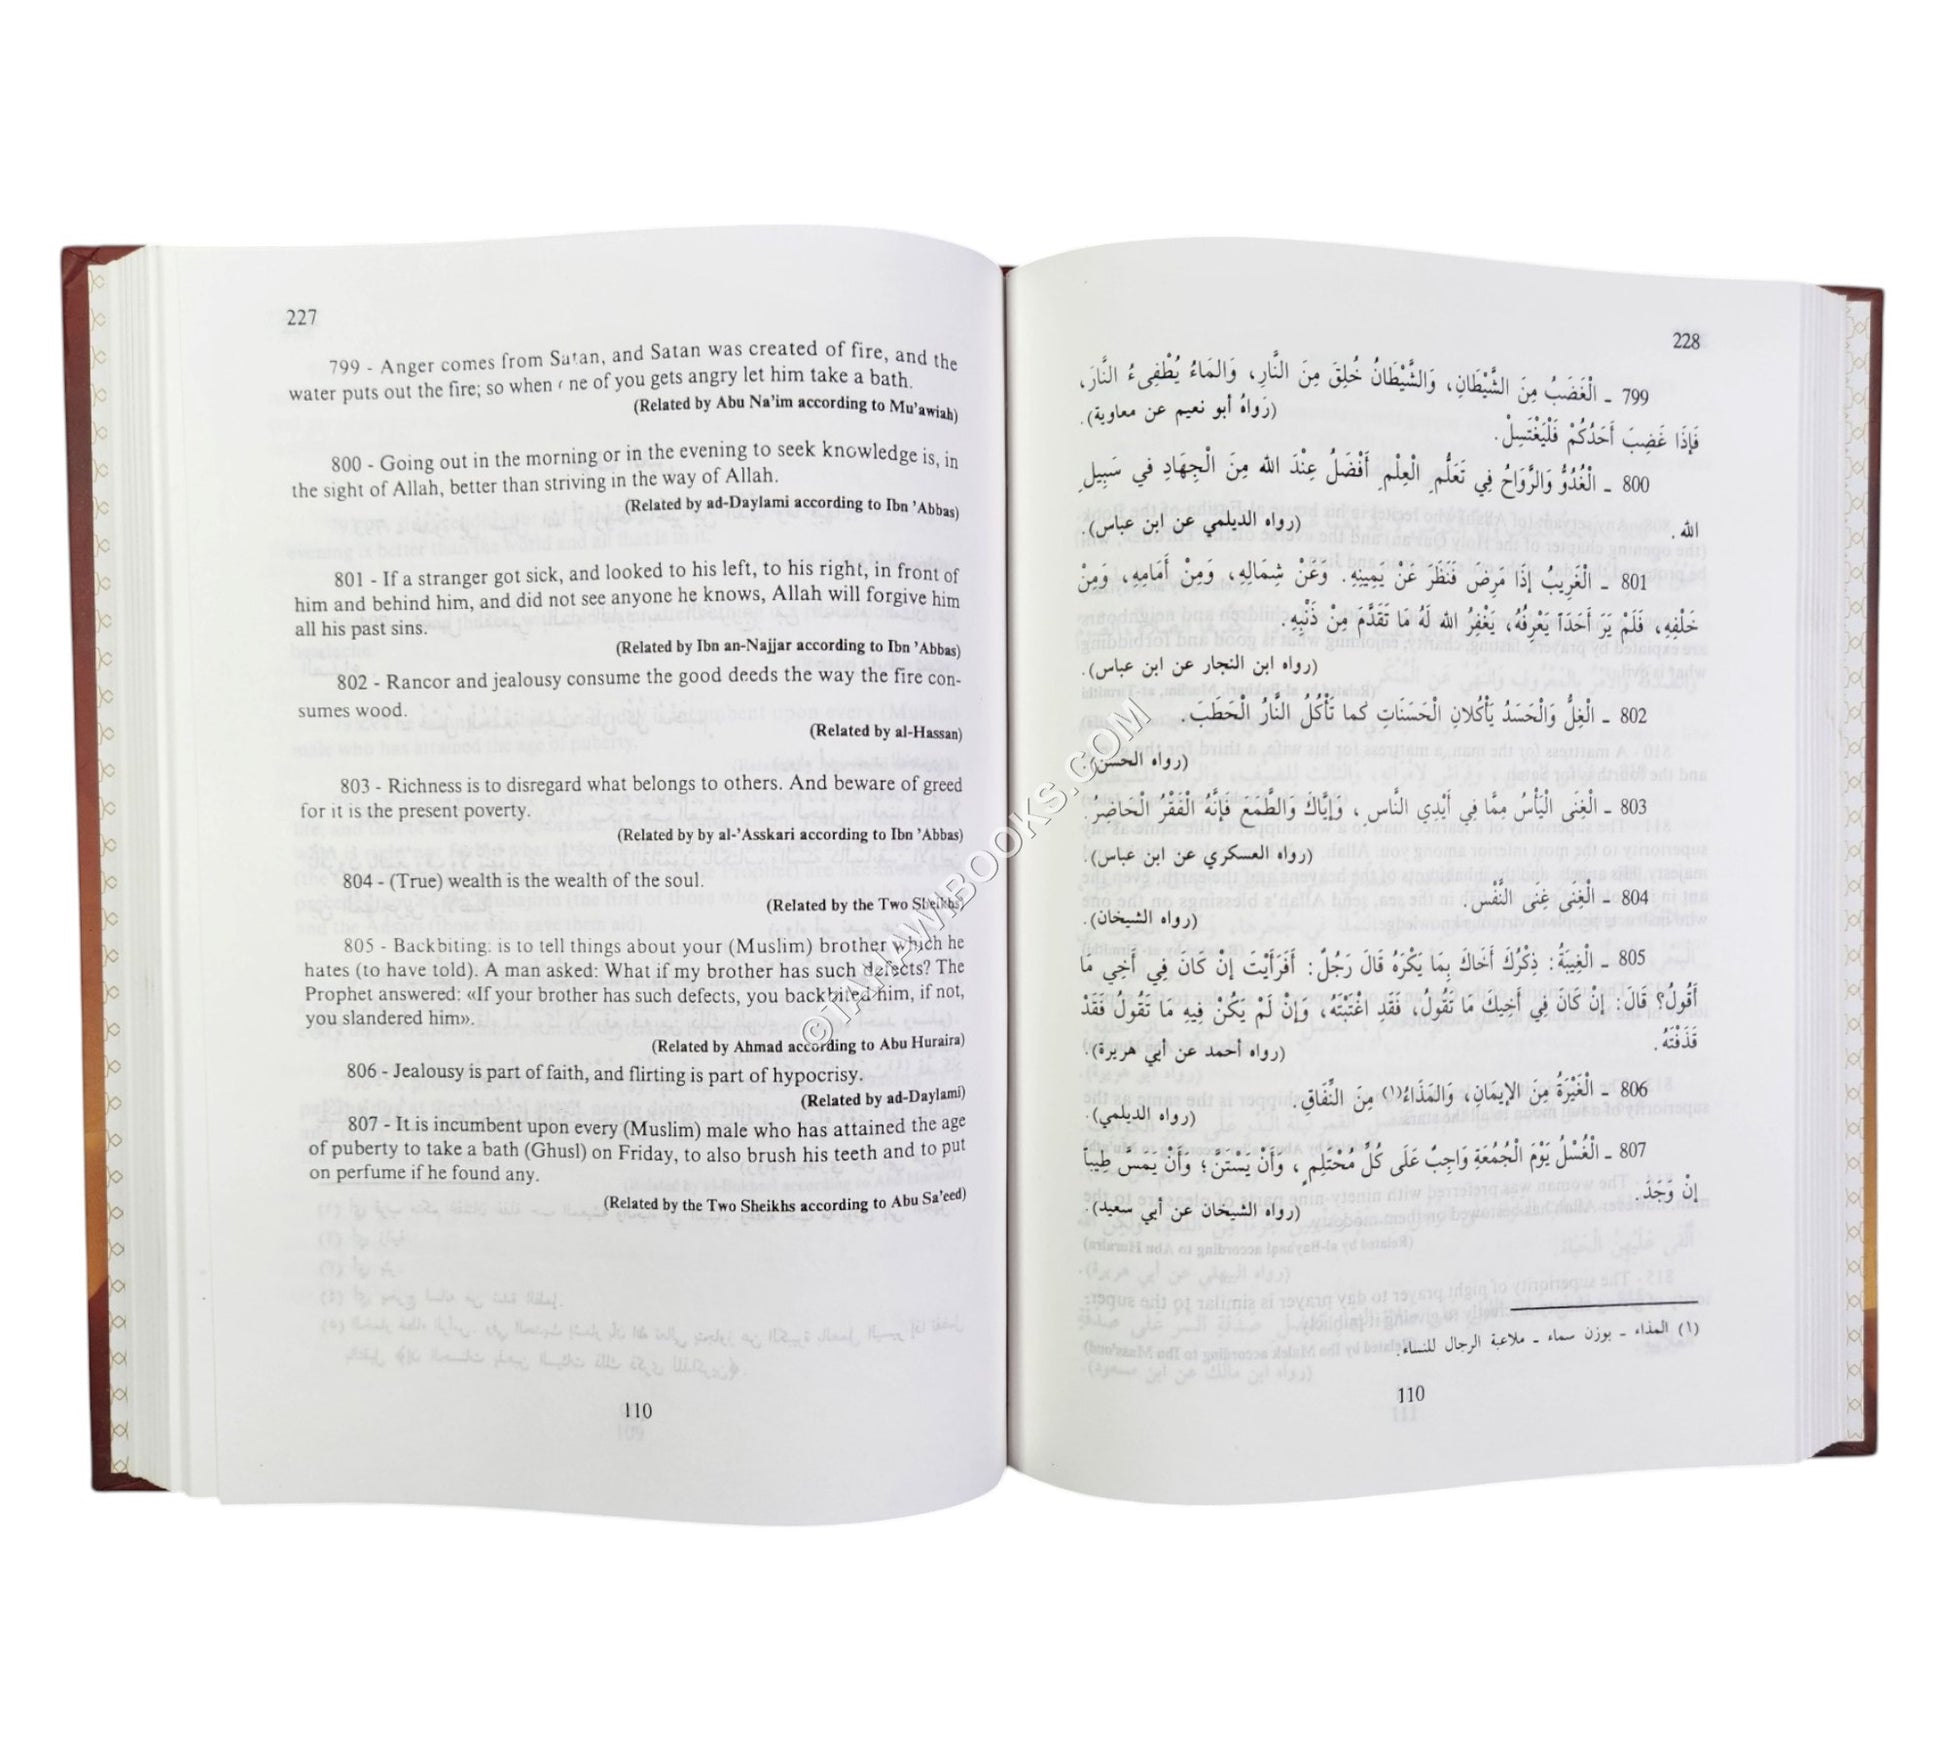 227
799 - Anger comes from Satan, and Satan was created of fire, and the
water puts out the fire; so when ne of you gets angry let him take a bath.
(Related by Abu Na'im according to Mu'awiah)
800 - Going out in the morning or in the evening to seek knowledge is, in
the sight of Allah, better than striving in the way of Allah.
(Related by ad-Daylami according to Ibn 'Abbas)
801 - If a stranger got sick, and looked to his left, to his right, in front of
him and behind him, and did not see anyone he knows, Allah will forgive him
all his past sins.
(Related by Ibn an-Najjar according to Ibn 'Abbas)
802 - Rancor and jealousy consume the good deeds the way the fire con-
sumes wood.
(Related by al-Hassan)
803 - Richness is to disregard what belongs to others. And beware of greed
for it is the present poverty.
(Related by by al-'Asskari according to Ibn 'Abbas)
804 - (True) wealth is the wealth of the soul.
(Related by the Two Sheikhs)
805 - Backbiting: is to tell things about your (Muslim) brother which he
hates (to have told). A man asked: What if my brother has such defects? The
Prophet answered: «If your brother has such defects, you backbited him, if not,
you slandered him».
(Related by Ahmad according to Abu Huraira)
806 - Jealousy is part of faith, and flirting is part of hypocrisy.
(Related by ad-Daylami)
807 - It is incumbent upon every (Muslim) male who has attained the age
of puberty to take a bath (Ghusl) on Friday, to also brush his teeth and to put
on perfume if he found any.
(Related by the Two Sheikhs according to Abu Sa'eed)
110
228
799 ـ الْغَضَبُ مِنَ الشَّيْطَانِ، وَالشَّيْطَانُ خُلِقَ مِنَ النَّارِ، وَالمَاءُ يُطْفِىءُ النَّارَ،
فَإِذَا غَضِبَ أَحَدُكُمْ فَلْيَغْتَسِلْ. (رَواهُ أبو نعيم عن معاوية).
800 ـ الْغُدُوُّ وَالرَّوَاحُ فِي تَعَلُّمِ الْعِلْمِ أَفْضَلُ عِنْدَ الله مِنَ الْجِهَادِ في سَبِيلِ
الله. (رواه الديلمي عن ابن عباس).
801 ـ الْغَرِيبُ إِذَا مَرِضَ فَنَظَرَ عَنْ يَمِينِهِ. وَعَنْ شِمَالِهِ، وَمِنْ أَمَامِهِ، وَمِنْ
خَلْفِهِ، فَلَمْ يَرَ أَحَدَاً يَعْرِفُهُ، يَغْفِرُ الله لَهُ مَا تَقَدَّمَ مِنْ ذَنْبِهِ.
(رواه ابن النجار عن ابن عباس).
802 ـ الْغِلُّ وَالْحَسَدُ يَأْكُلَانِ الْحَسَنَاتِ كما تَأْكُلُ النَّارُ الْحَطَبَ.
(رواه الحسن).
803 ـ الْغِنَى الْيَأْسُ مِمَّا فِي أَيْدِي النَّاسِ، وَإِيَّاكَ وَالطَّمَعَ فَإِنَّهُ الْفَقْرُ الْحَاضِرُ.
(رواه العسكري عن ابن عباس).
804 ـ الْغِنَى غِنَى النَّفْسِ.
(رواه الشيخان).
805 ـ الْغِيبَةُ: ذِكْرُكَ أَخَاكَ بِمَا يَكْرَهُ قَالَ رَجُلٌ: أَفَرَأَيْتَ إِنْ كَانَ فِي أَخِي مَا
أَقُولُ؟ قَالَ: إِنْ كَانَ فِي أَخِيكَ مَا تَقُولُ، فَقَدِ اغْتَبْتَهُ، وَإِنْ لَمْ يَكُنْ فِيهِ مَا تَقُولُ فَقَدْ
قَذَفْتَهُ. (رواه أحمد عن أبي هريرة).
806 ـ الْغَيْرَةُ مِنَ الإِيمَانِ، وَالمَذَاءُ(١) مِنَ النِّفَاقِ.
(رواه الديلمي).
807 ـ الْغُسْلُ يَوْمَ الْجُمُعَةِ وَاجِبٌ عَلَى كُلِّ مُحْتَلِمٍ، وَأَنْ يَسْتَنَّ؛ وَأَنْ يَمَسَّ طِيباً
إِنْ وَجَدَ. (رواه الشيخان عن أبي سعيد).
(١) المذاء ـ بوزن سماء ـ ملاعبة الرجال للنساء.
110
©TAJAWIBOOKS.COM